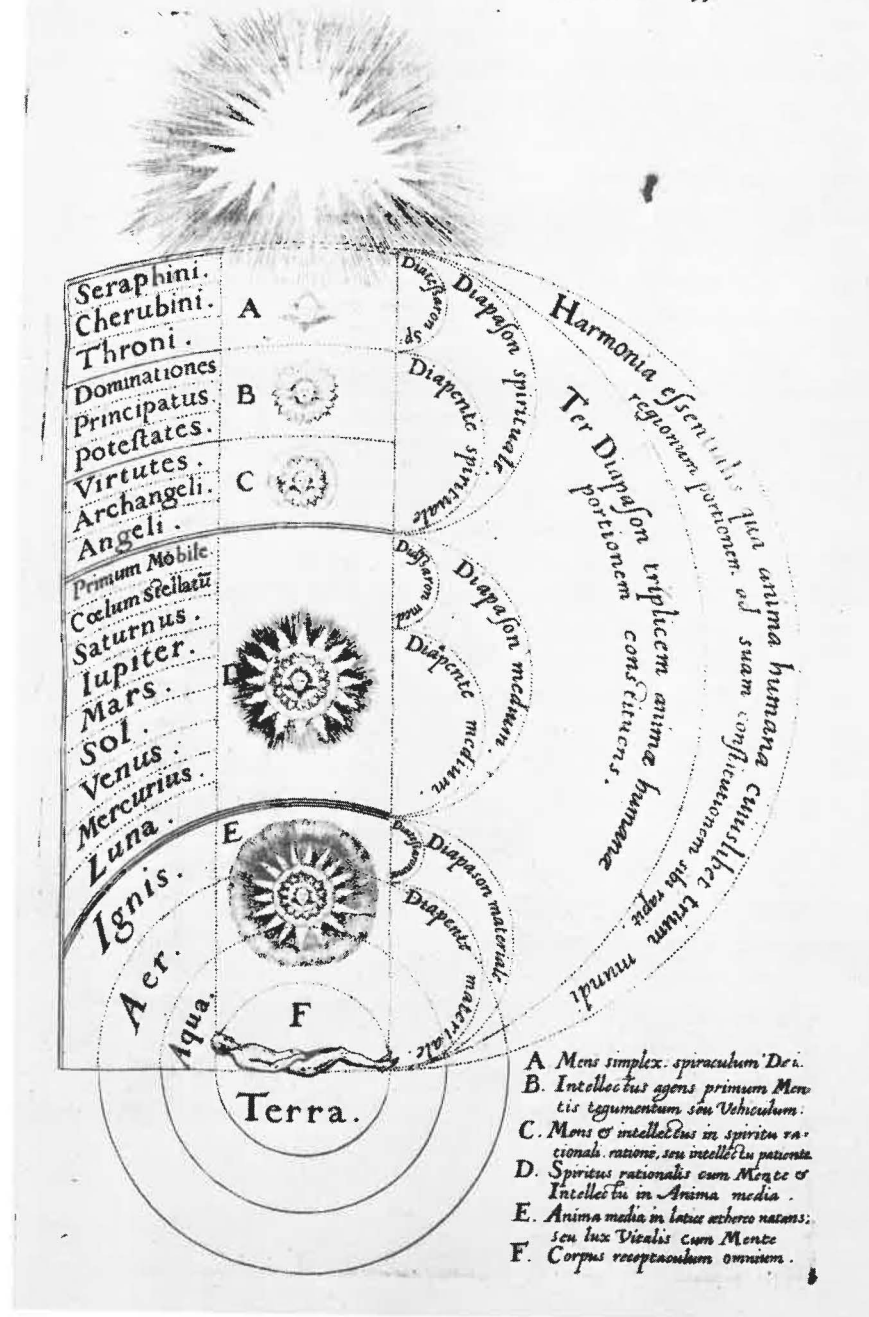 Seraphini.
Cherubini.
Throni.
Dominationes
Principatus.
Potestates.
Virtutes.
Archangeli.
Angeli.
Primum Mobile.
Cœlum stellatū
Saturnus.
Iupiter.
Mars.
Sol.
Venus.
Mercurius.
Luna.
Ignis.
Aer.
Aqua.
Terra.
A
B
C
D
E
F
Diateßaron sp
Diapente spirituale
Diapaſon spirituale
Diateßaron med
Diapente medium
Diapaſon medium
Diapente materiale
Diapason materiale
Ter Diapaſon triplicem animæ humanæ
portionem constituens.
Harmonia eſsentialis qua anima humana cuiuslibet trium mundi
regionum portionem ad suam conſtitutionem sibi rapit.
A Mens simplex. spiraculum Dei.
B. Intellectus agens primum Men-
tis tegumentum seu Vehiculum.
C. Mens & intellectus in spiritu ra-
tionali. ratione, seu intellectu patiente
D. Spiritus rationalis cum Mente &
Intellectu in Anima media.
E. Anima media in latice æthereo natans;
seu lux Vitalis cum Mente
F. Corpus receptaculum omnium.